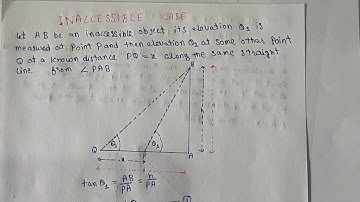 INACCESSIBLE CASE
Let AB be an inaccessible object its elevation θ1 is
measured at Point P and then elevation θ2 at some other point
Q at a known distance PQ = x along the same straight
line from ∠PAB
B
h
θ1
θ2
Q
P
A
x
tan θ1 = AB/PA = h/PA